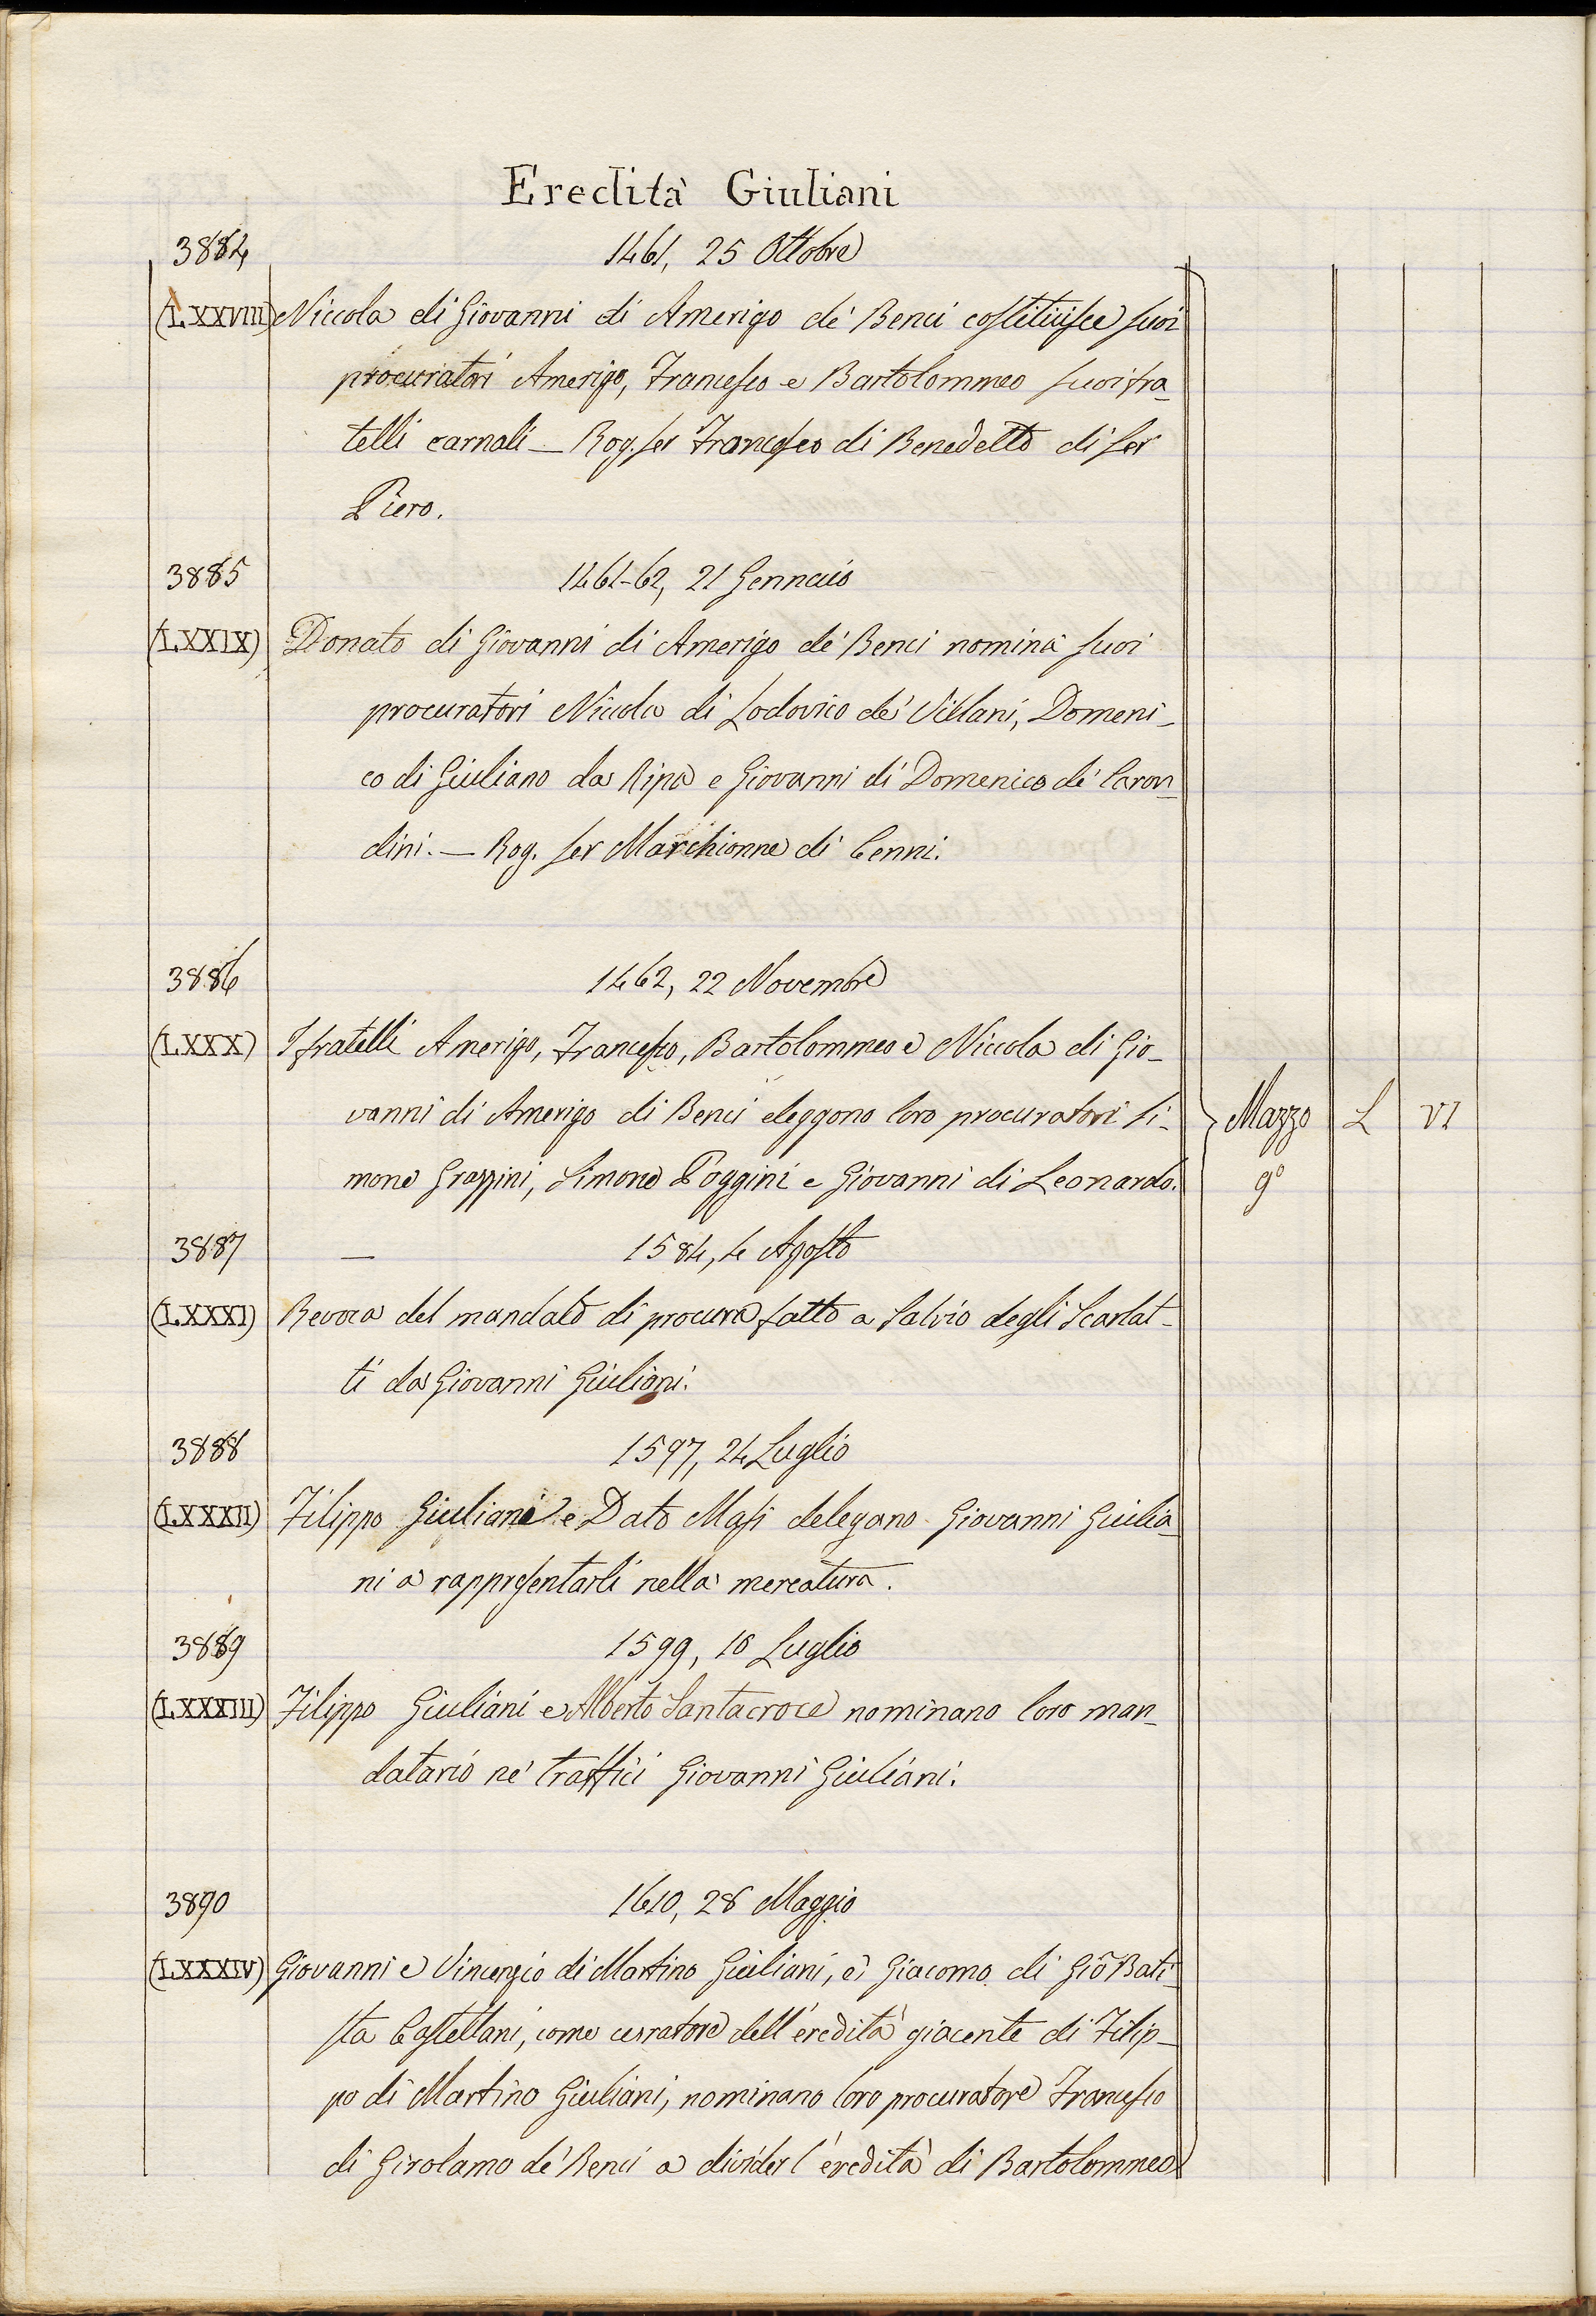 Eredità Giuliani
3884
1461, 25 Ottobre
(LXXVIII) Niccola di Giovanni di Amerigo de' Benci costituisce suoi
procuratori Amerigo, Francesco e Bartolommeo suoi fra-
telli carnali — Rog. ser Francesco di Benedetto di ser
Piero.
3885
1461-62, 21 Gennaio
(LXXIX) Donato di Giovanni di Amerigo de' Benci nomina suoi
procuratori Niccola di Lodovico de' Villani, Domeni-
co di Giuliano da Ripa e Giovanni di Domenico de'
dini. — Rog. ser Marchionne di Cenni.
3886
1462, 22 Novembre
(LXXX) I fratelli Amerigo, Francesco, Bartolommeo e Niccola di Gio-
vanni di Amerigo di Benci eleggono loro procuratori Si-
mone Grappini, Simone Poggini e Giovanni di Leonardo.
Mazzo L VI
9º
3887
— 1584, 4 Agosto
(LXXXI) Revoca del mandato di procura fatto a Salvio degli Scarlat-
ti da Giovanni Giuliani.
3888
1597, 24 Luglio
(LXXXII) Filippo Giuliani e Dato Masi delegano Giovanni Giulia-
ni a rappresentarli nella mercatura.
3889
1599, 10 Luglio
(LXXXIII) Filippo Giuliani e Alberto Santacroce nominano loro man-
datario ne' traffici Giovanni Giuliani.
3890
1610, 28 Maggio
(LXXXIV) Giovanni e Vincenzio di Martino Giuliani, e Giacomo di Gio Bati-
sta Castellani, come curatore dell'eredità giacente di Filip-
po di Martino Giuliani, nominano loro procuratore Francesco
di Girolamo de' Benci a divider l'eredità di Bartolommeo